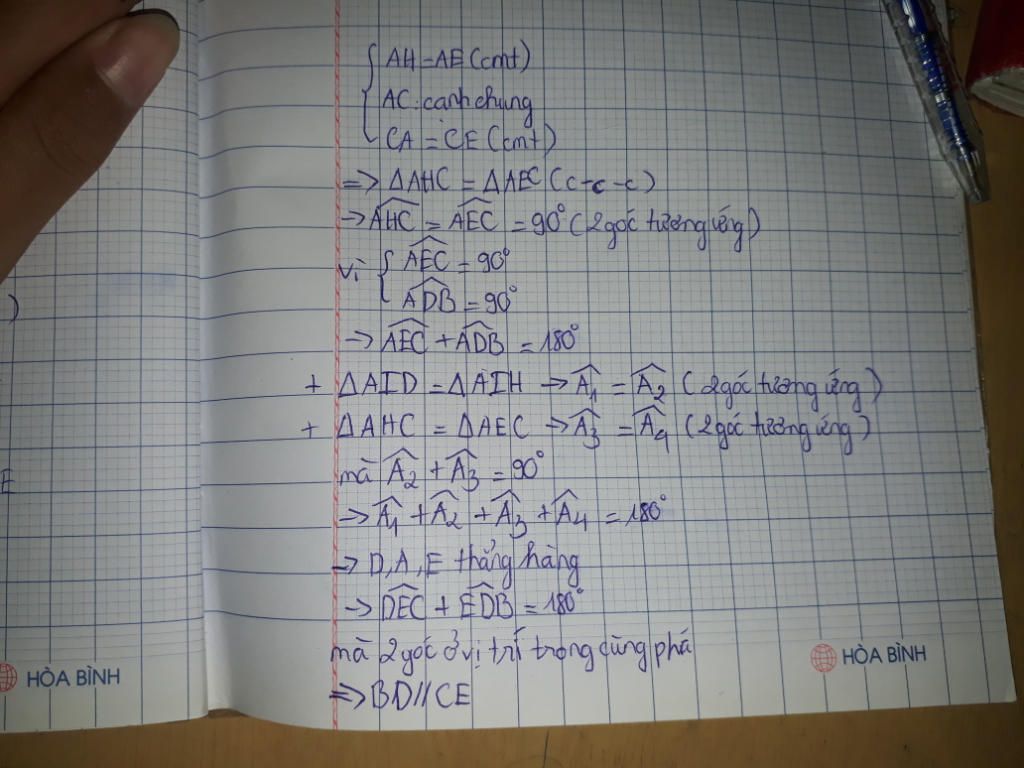 AH = AE (cmt)
AC: cạnh chung
CA = CE (cmt)
=> ΔAHC = ΔAEC (c-c-c)
→ \widehat{AHC} = \widehat{AEC} = 90° (2 góc tương ứng)
Vì { \widehat{AEC} = 90°
\widehat{ADB} = 90°
→ \widehat{AEC} + \widehat{ADB} = 180°
+ ΔAID = ΔAIH → \widehat{A_1} = \widehat{A_2} (2 góc tương ứng)
+ ΔAHC = ΔAEC → \widehat{A_3} = \widehat{A_4} (2 góc tương ứng)
mà \widehat{A_2} + \widehat{A_3} = 90°
→ \widehat{A_1} + \widehat{A_2} + \widehat{A_3} + \widehat{A_4} = 180°
→ D, A, E thẳng hàng
→ \widehat{DEC} + \widehat{EDB} = 180°
mà 2 góc ở vị trí trong cùng phá
=> BD // CE
)
E
HÒA BÌNH
HÒA BÌNH